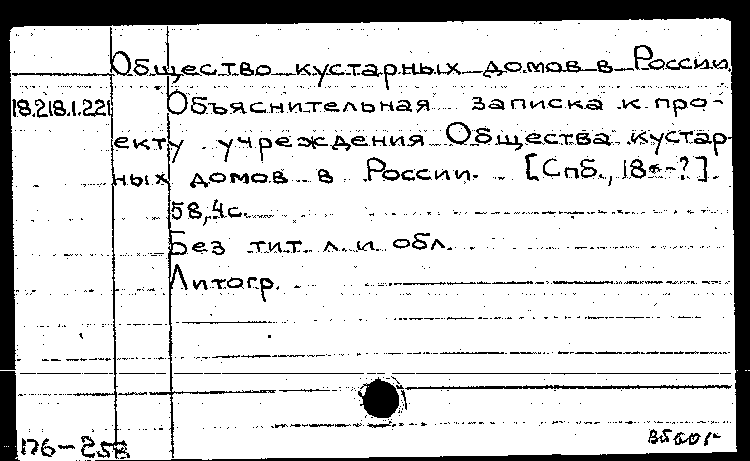 Общество кустарных домов в России
18.218.1.221 Объяснительная записка к про-
екту учреждения Общества кустар-
ных домов в России. [Спб., 18--?].
58, 4 с.
Без тит. л. и обл.
Литогр.
176-258